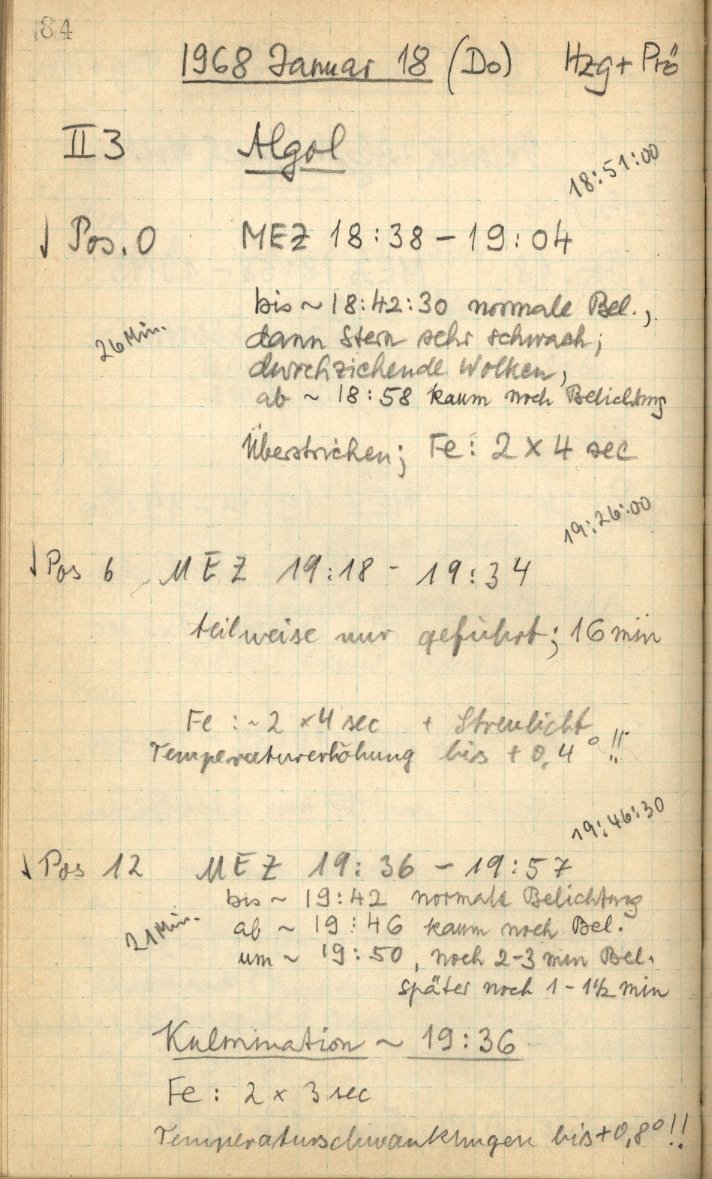 84
1968 Januar 18 (Do) Hzg + Prö
II 3 Algol
18:51:00
↓ Pos. 0 MEZ 18:38 - 19:04
bis ~ 18:42:30 normale Bel.,
26 Min.
dann Stern sehr schwach;
durchziehende Wolken,
ab ~ 18:58 kaum noch Belichtung
Überstrichen; Fe: 2 x 4 sec
19:26:00
↓ Pos 6 MEZ 19:18 - 19:34
teilweise nur geführt; 16 min
Fe: ~2 x 4 sec + Streulicht
Temperaturerhöhung bis +0,4° !!
19:46:30
↓ Pos 12 MEZ 19:36 - 19:57
bis ~ 19:42 normale Belichtung
21 Min.
ab ~ 19:46 kaum noch Bel.
um ~ 19:50, noch 2-3 min Bel.
später noch 1 - 1 1/2 min
Kulmination ~ 19:36
Fe: 2 x 3 sec
Temperaturschwankungen bis +0,8° !!